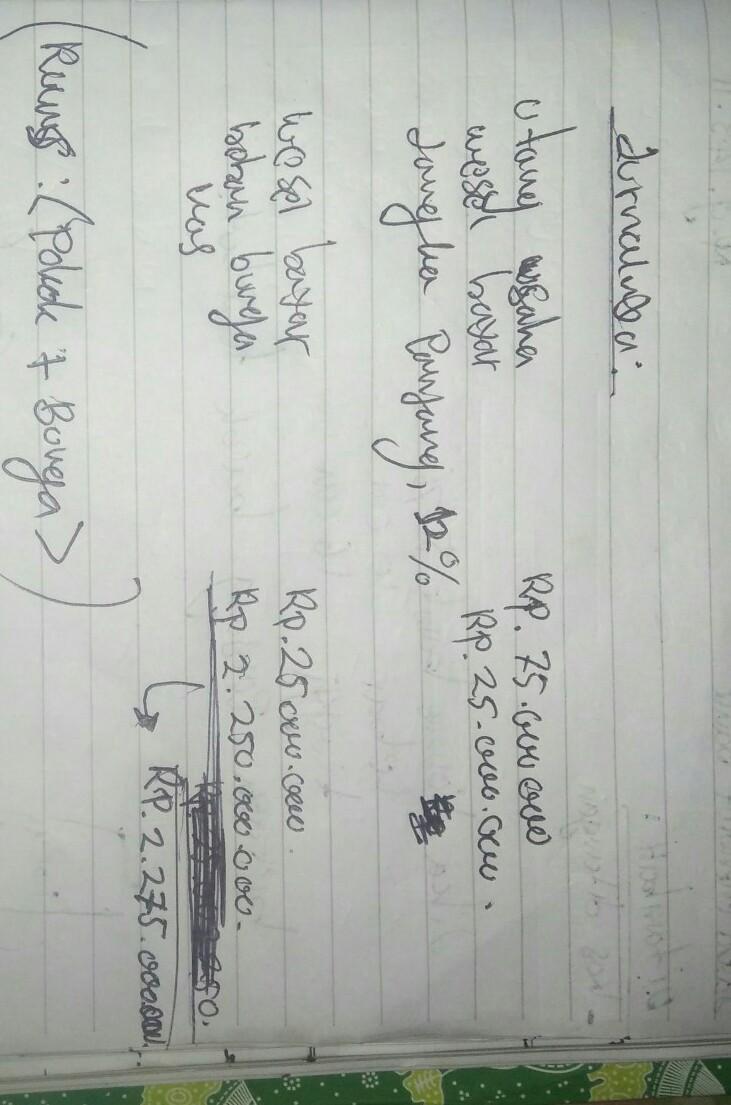 Jurnalnya:
utang usaha Rp. 75.000.000
wesel bayar Rp. 25.000.000.
Jangka Panjang, 12%
wesel bayar Rp. 25.000.000.
beban bunga Rp 2.250.000.000.
kas
Rp. 2.275.000.000.
(Rumus : (Pokok + Bunga>)